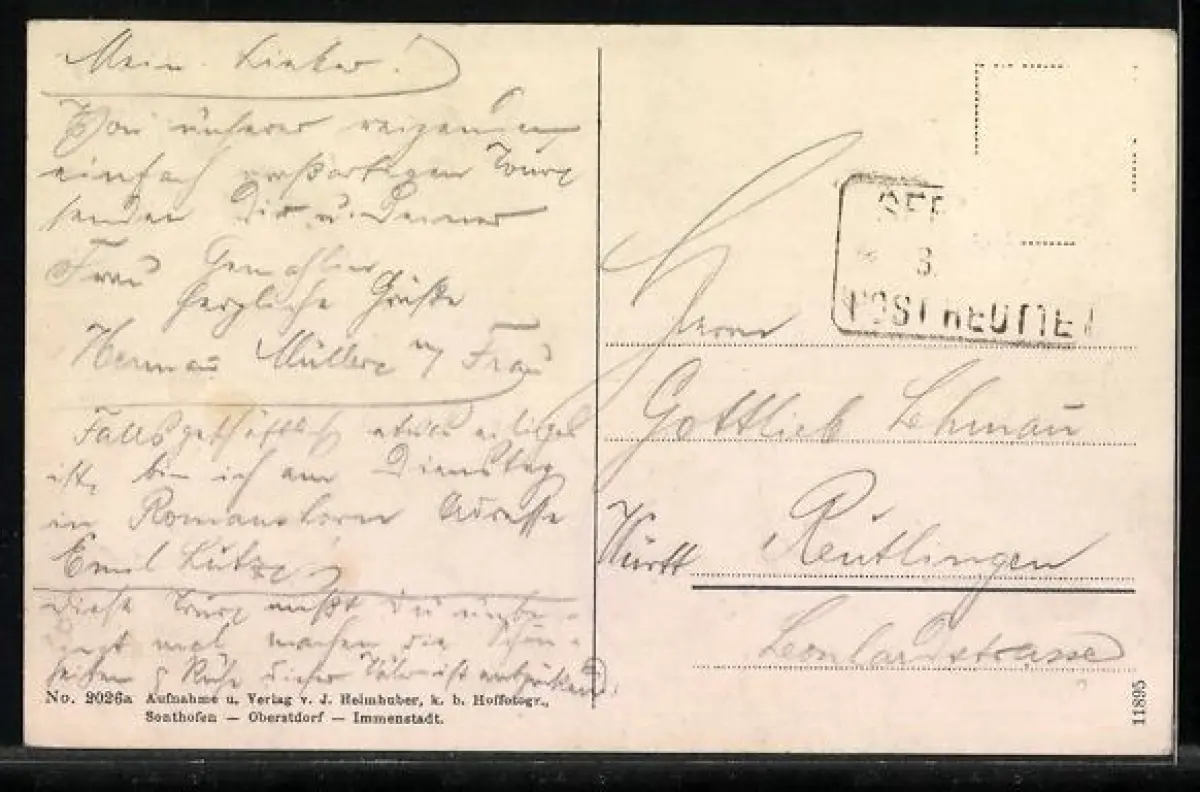 Mein Lieber!
Von unserer reizenden
einfach großartigen Tour
senden Dir u. Deiner
Frau Gemahlin
herzliche Grüße
Herman Müller u. Frau
Falls geschäftlich etwas eiliges
ist, bin ich am Dienstag
in Romanshorn Adresse
Emil Lutz
Diese Tour mußt Du unbe-
dingt mal machen die Schön-
heiten & Ruhe dieser Täler ist
No. 2026a Aufnahme u. Verlag v. J. Heimhuber, k. b. Hoffotogr.,
Sonthofen — Oberstdorf — Immenstadt.
POST REUTTE
Herrn
Gottlieb Lehmann
Württ Reutlingen
Leonhardstrasse
11895